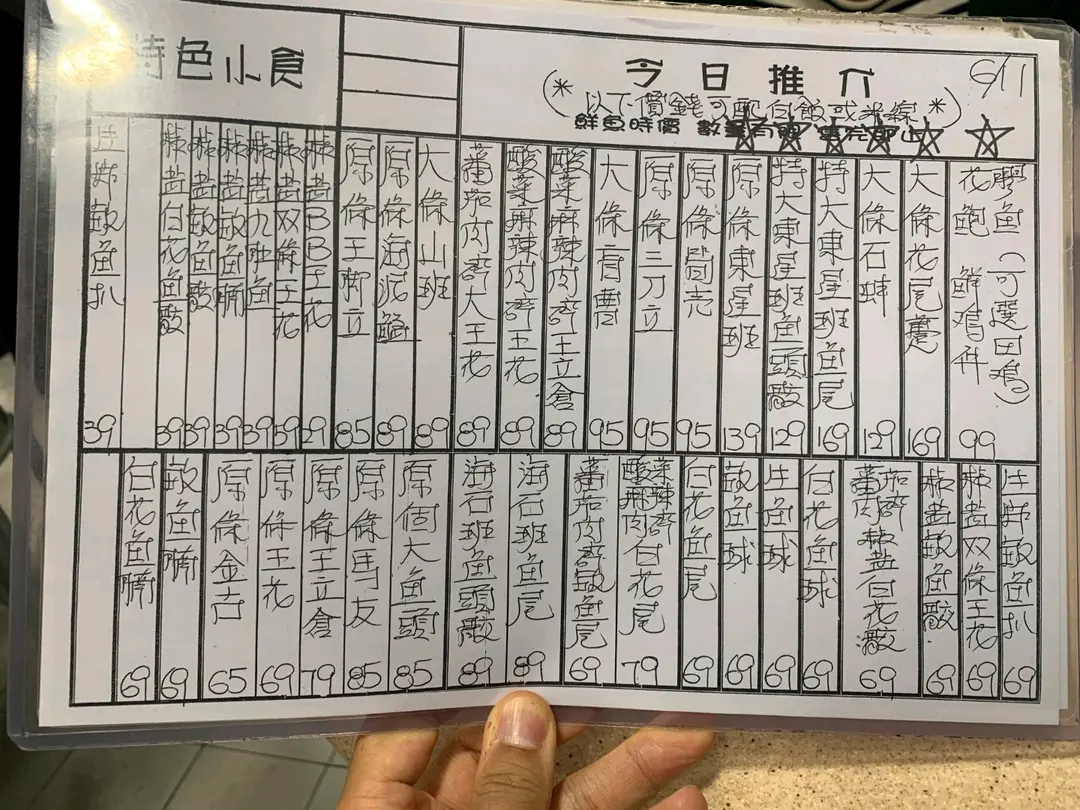 今日推介
6/11
(*以下價錢可配白飯或米線*)
鮮魚時價
特色小食
花鮑 鮮鷄件 99
膠魚(可選田鳮)
大條花尾躉 169
大條石蚌 129
特大東星班魚尾 169
特大東星班魚頭 129
原條東星班 139
原條 95
原條三刀立 95
大條 95
酸菜麻辣肉碎王立倉 89
酸菜麻辣肉碎王花 89
蕃茄肉碎大王花 89
大條山班 89
原條海泥鯭 89
原條王腳立 85
椒盐BB王花 29
椒盐双條王花 59
椒盐九肚魚 39
椒盐魚腩 39
椒盐魚 39
椒盐白花魚 39
魚扒 39
魚扒 69
椒盐双條王花 69
椒盐魚 69
蕃茄肉碎椒盐白花 69
白花魚球 69
生魚球 69
魚球 69
白花魚尾 69
酸菜麻辣肉碎白花尾 79
蕃茄肉碎魚尾 69
海石班魚尾 89
海石班魚頭 89
原個大魚頭 85
原條馬友 85
原條王立倉 79
原條王花 69
原條金古 65
魚腩 69
白花魚腩 69